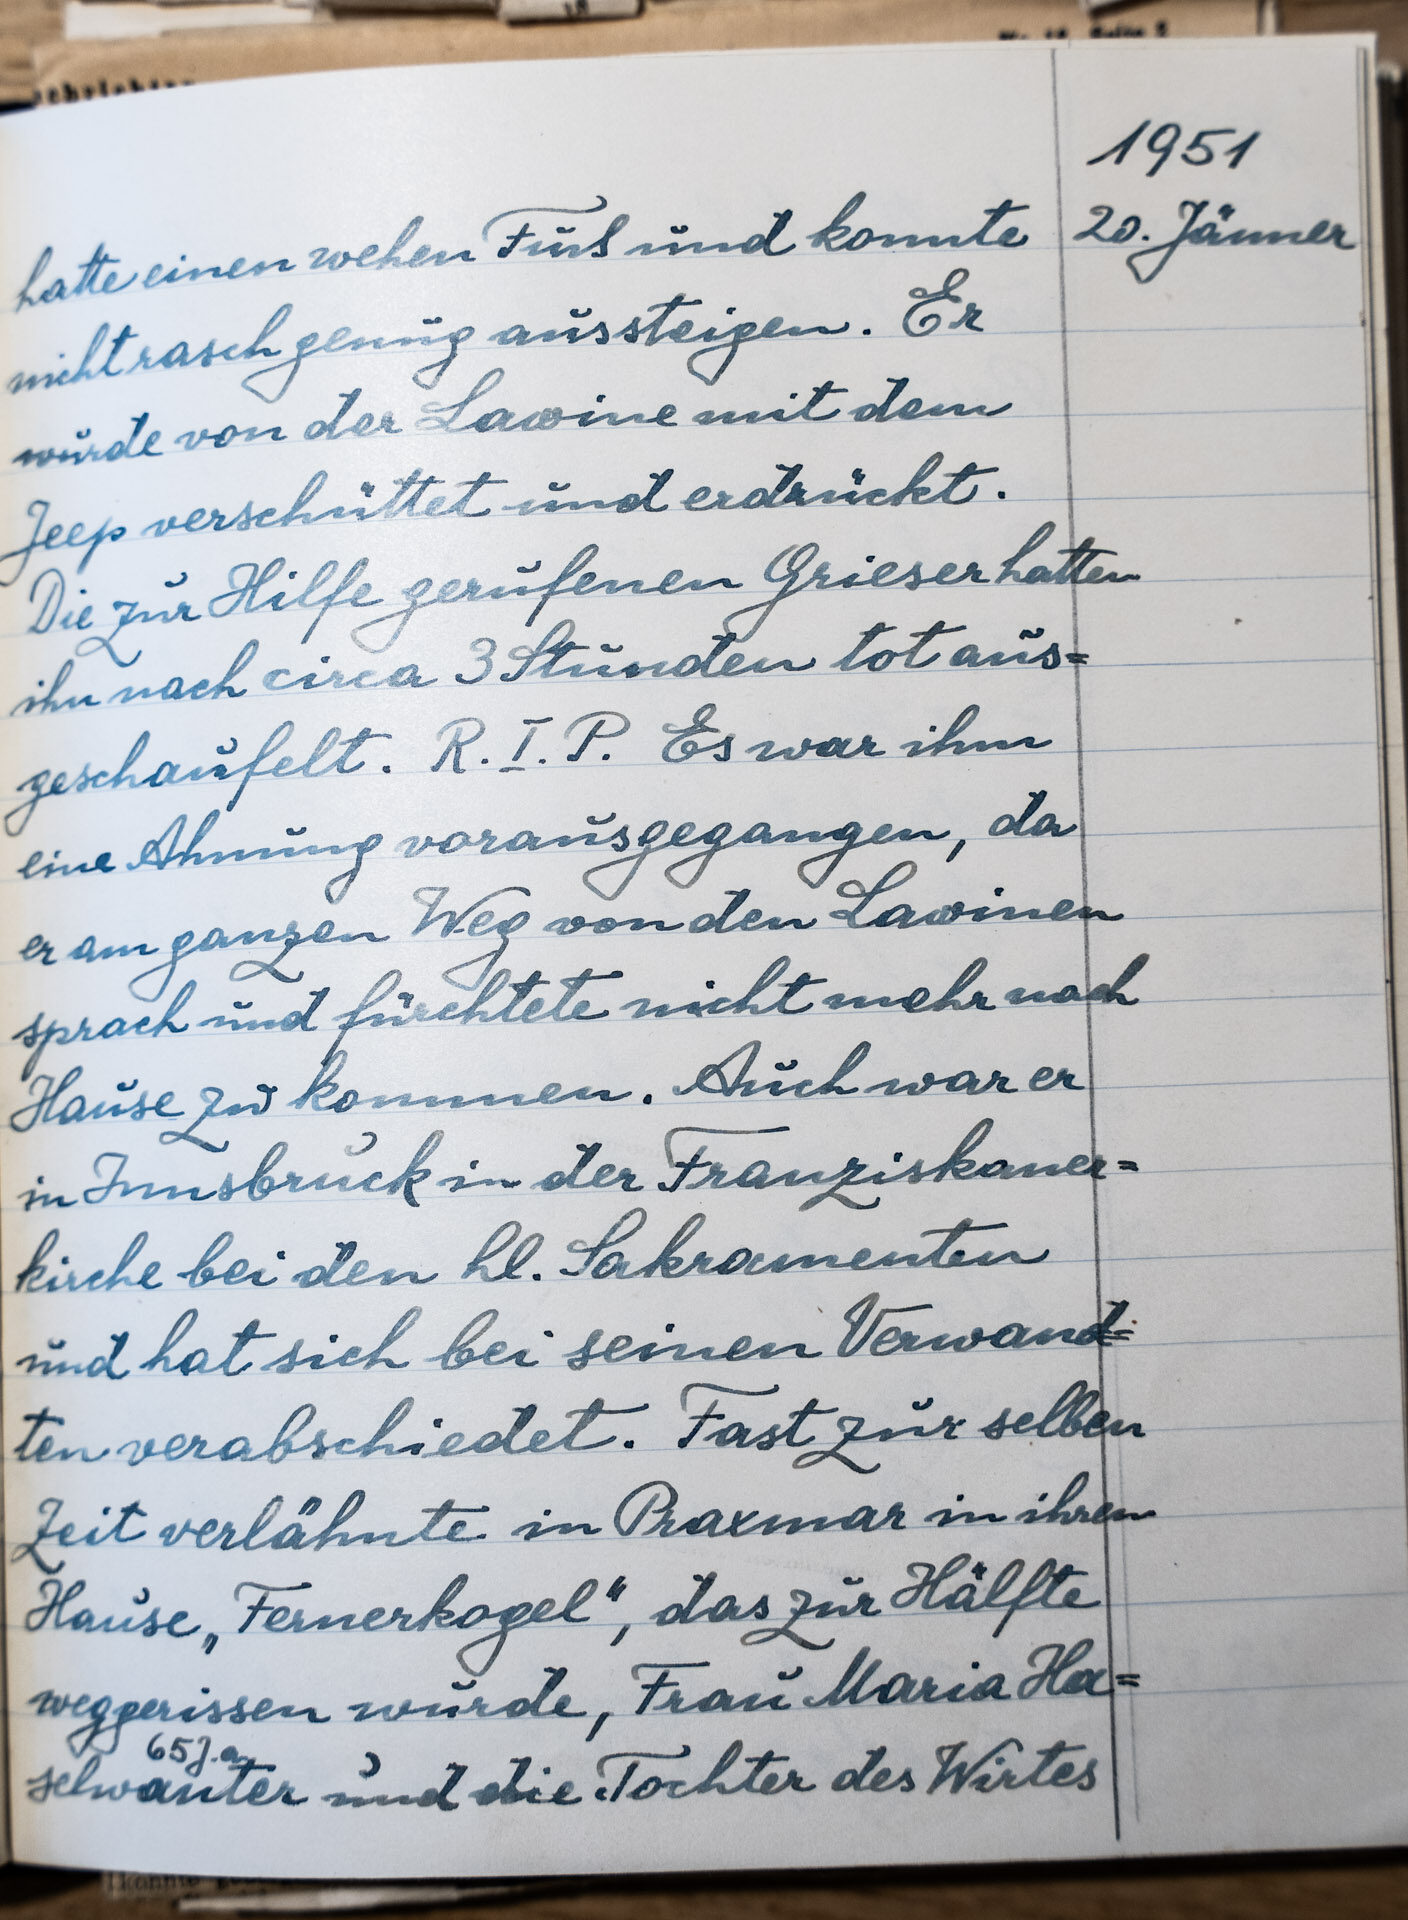 Nr. 18 Seite 2
1951
20. Jänner
hatte einen wehen Fuß und konnte
nicht rasch genug aussteigen. Er
wurde von der Lawine mit dem
Jeep verschüttet und erdrückt.
Die zur Hilfe gerufenen Grieser hatten
ihn nach circa 3 Stunden tot aus=
geschaufelt. R.I.P. Es war ihm
eine Ahnung vorausgegangen, da
er am ganzen Weg von den Lawinen
sprach und fürchtete nicht mehr nach
Hause zu kommen. Auch war er
in Innsbruck in der Franziskaner=
kirche bei den hl. Sakramenten
und hat sich bei seinen Verwand=
ten verabschiedet. Fast zur selben
Zeit verlähnte in Praxmar in ihren
Hause „Fernerkogel", das zur Hälfte
weggerissen wurde, Frau Maria Ha=
65 J. a.
selwanter und die Tochter des Wirtes